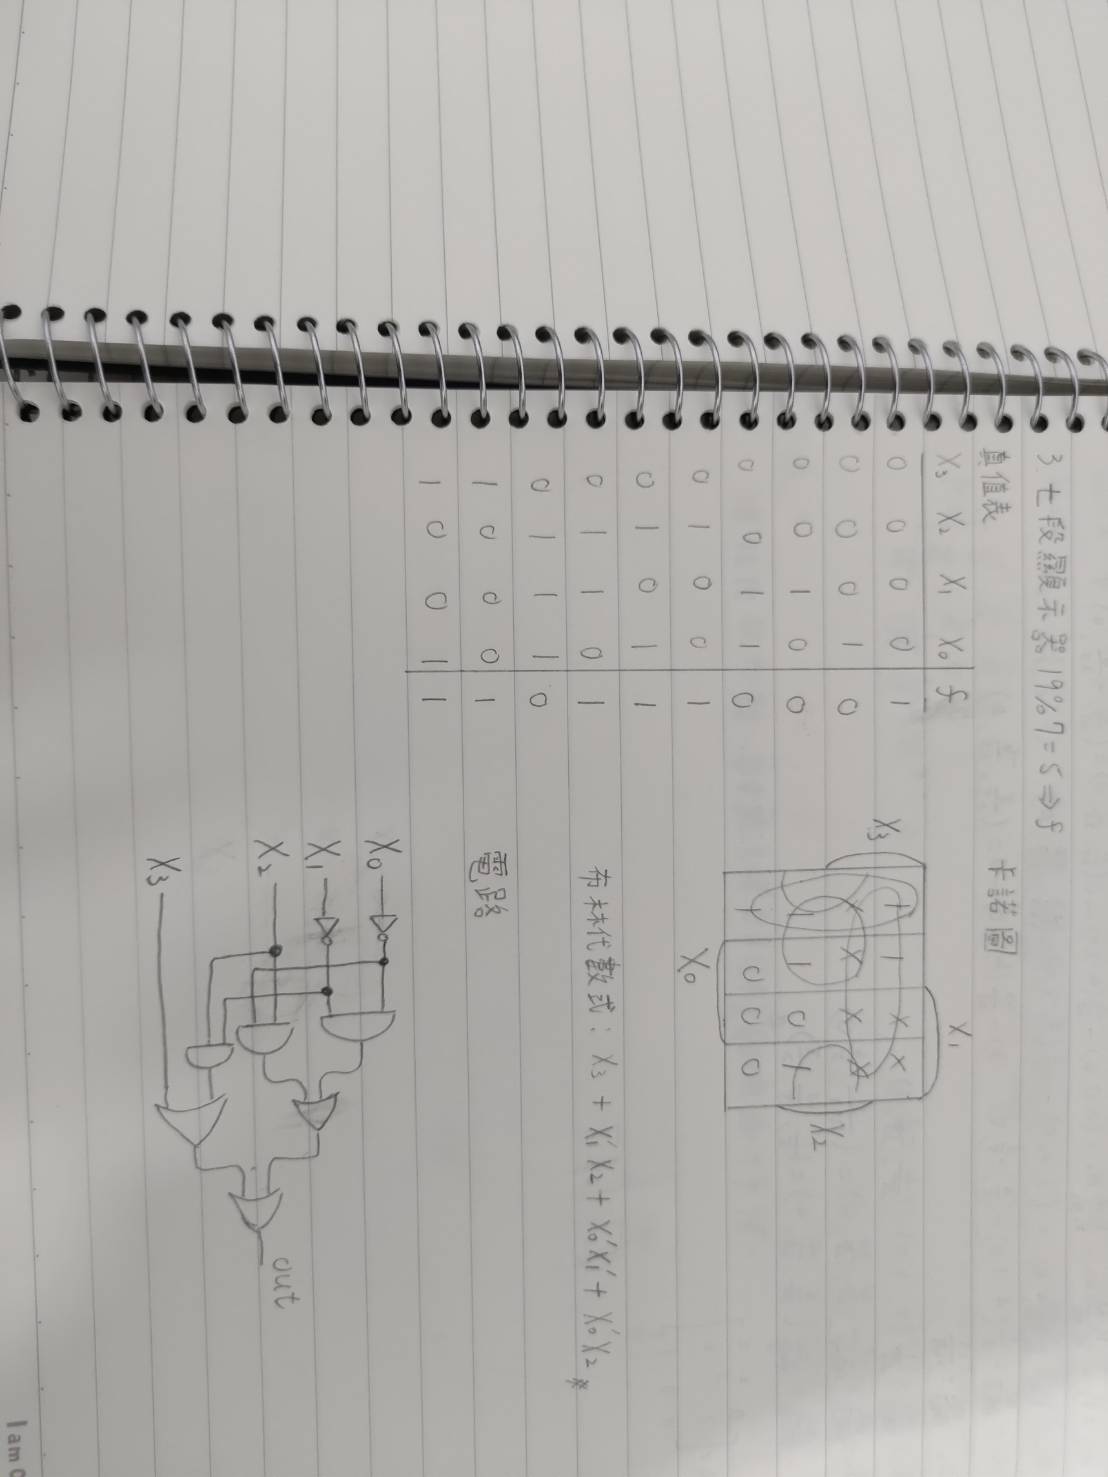 3. 七段顯示器 19%7=5⇒f
真值表
X₃ X₂ X₁ X₀ f
0 0 0 0 1
0 0 0 1 0
0 0 1 0 0
0 0 1 1 0
0 1 0 0 1
0 1 0 1 1
0 1 1 0 1
0 1 1 1 0
1 0 0 0 1
1 0 0 1 1
卡諾圖
X₁
X₃
1 1 X X
X X X X
1 1 0 1
1 0 0 0
X₂
X₀
布林代數式: X₃ + X₁'X₂ + X₀'X₁' + X₀'X₂ *
電路
X₀
X₁
X₂
X₃
out
I am